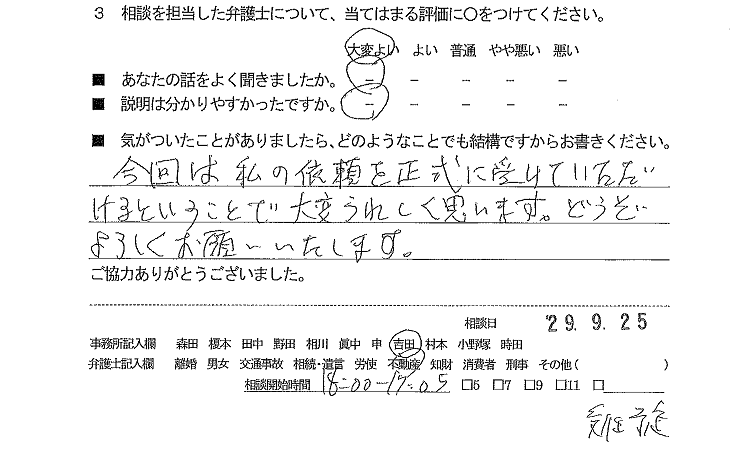 3 相談を担当した弁護士について、当てはまる評価に○をつけてください。
大変よい よい 普通 やや悪い 悪い
■ あなたの話をよく聞きましたか。 － － － － －
■ 説明は分かりやすかったですか。 － － － － －
■ 気がついたことがありましたら、どのようなことでも結構ですからお書きください。
今回は私の依頼を正式に受けていただ
けるということで大変うれしく思います。どうぞ
よろしくお願いいたします。
ご協力ありがとうございました。
相談日 '29.9.25
事務所記入欄 森田 榎本 田中 野田 相川 眞中 申 吉田 村本 小野塚 時田
弁護士記入欄 離婚 男女 交通事故 相続・遺言 労使 不動産 知財 消費者 刑事 その他( )
相談開始時間 18:00-19:05 □5 □7 □9 □11 □